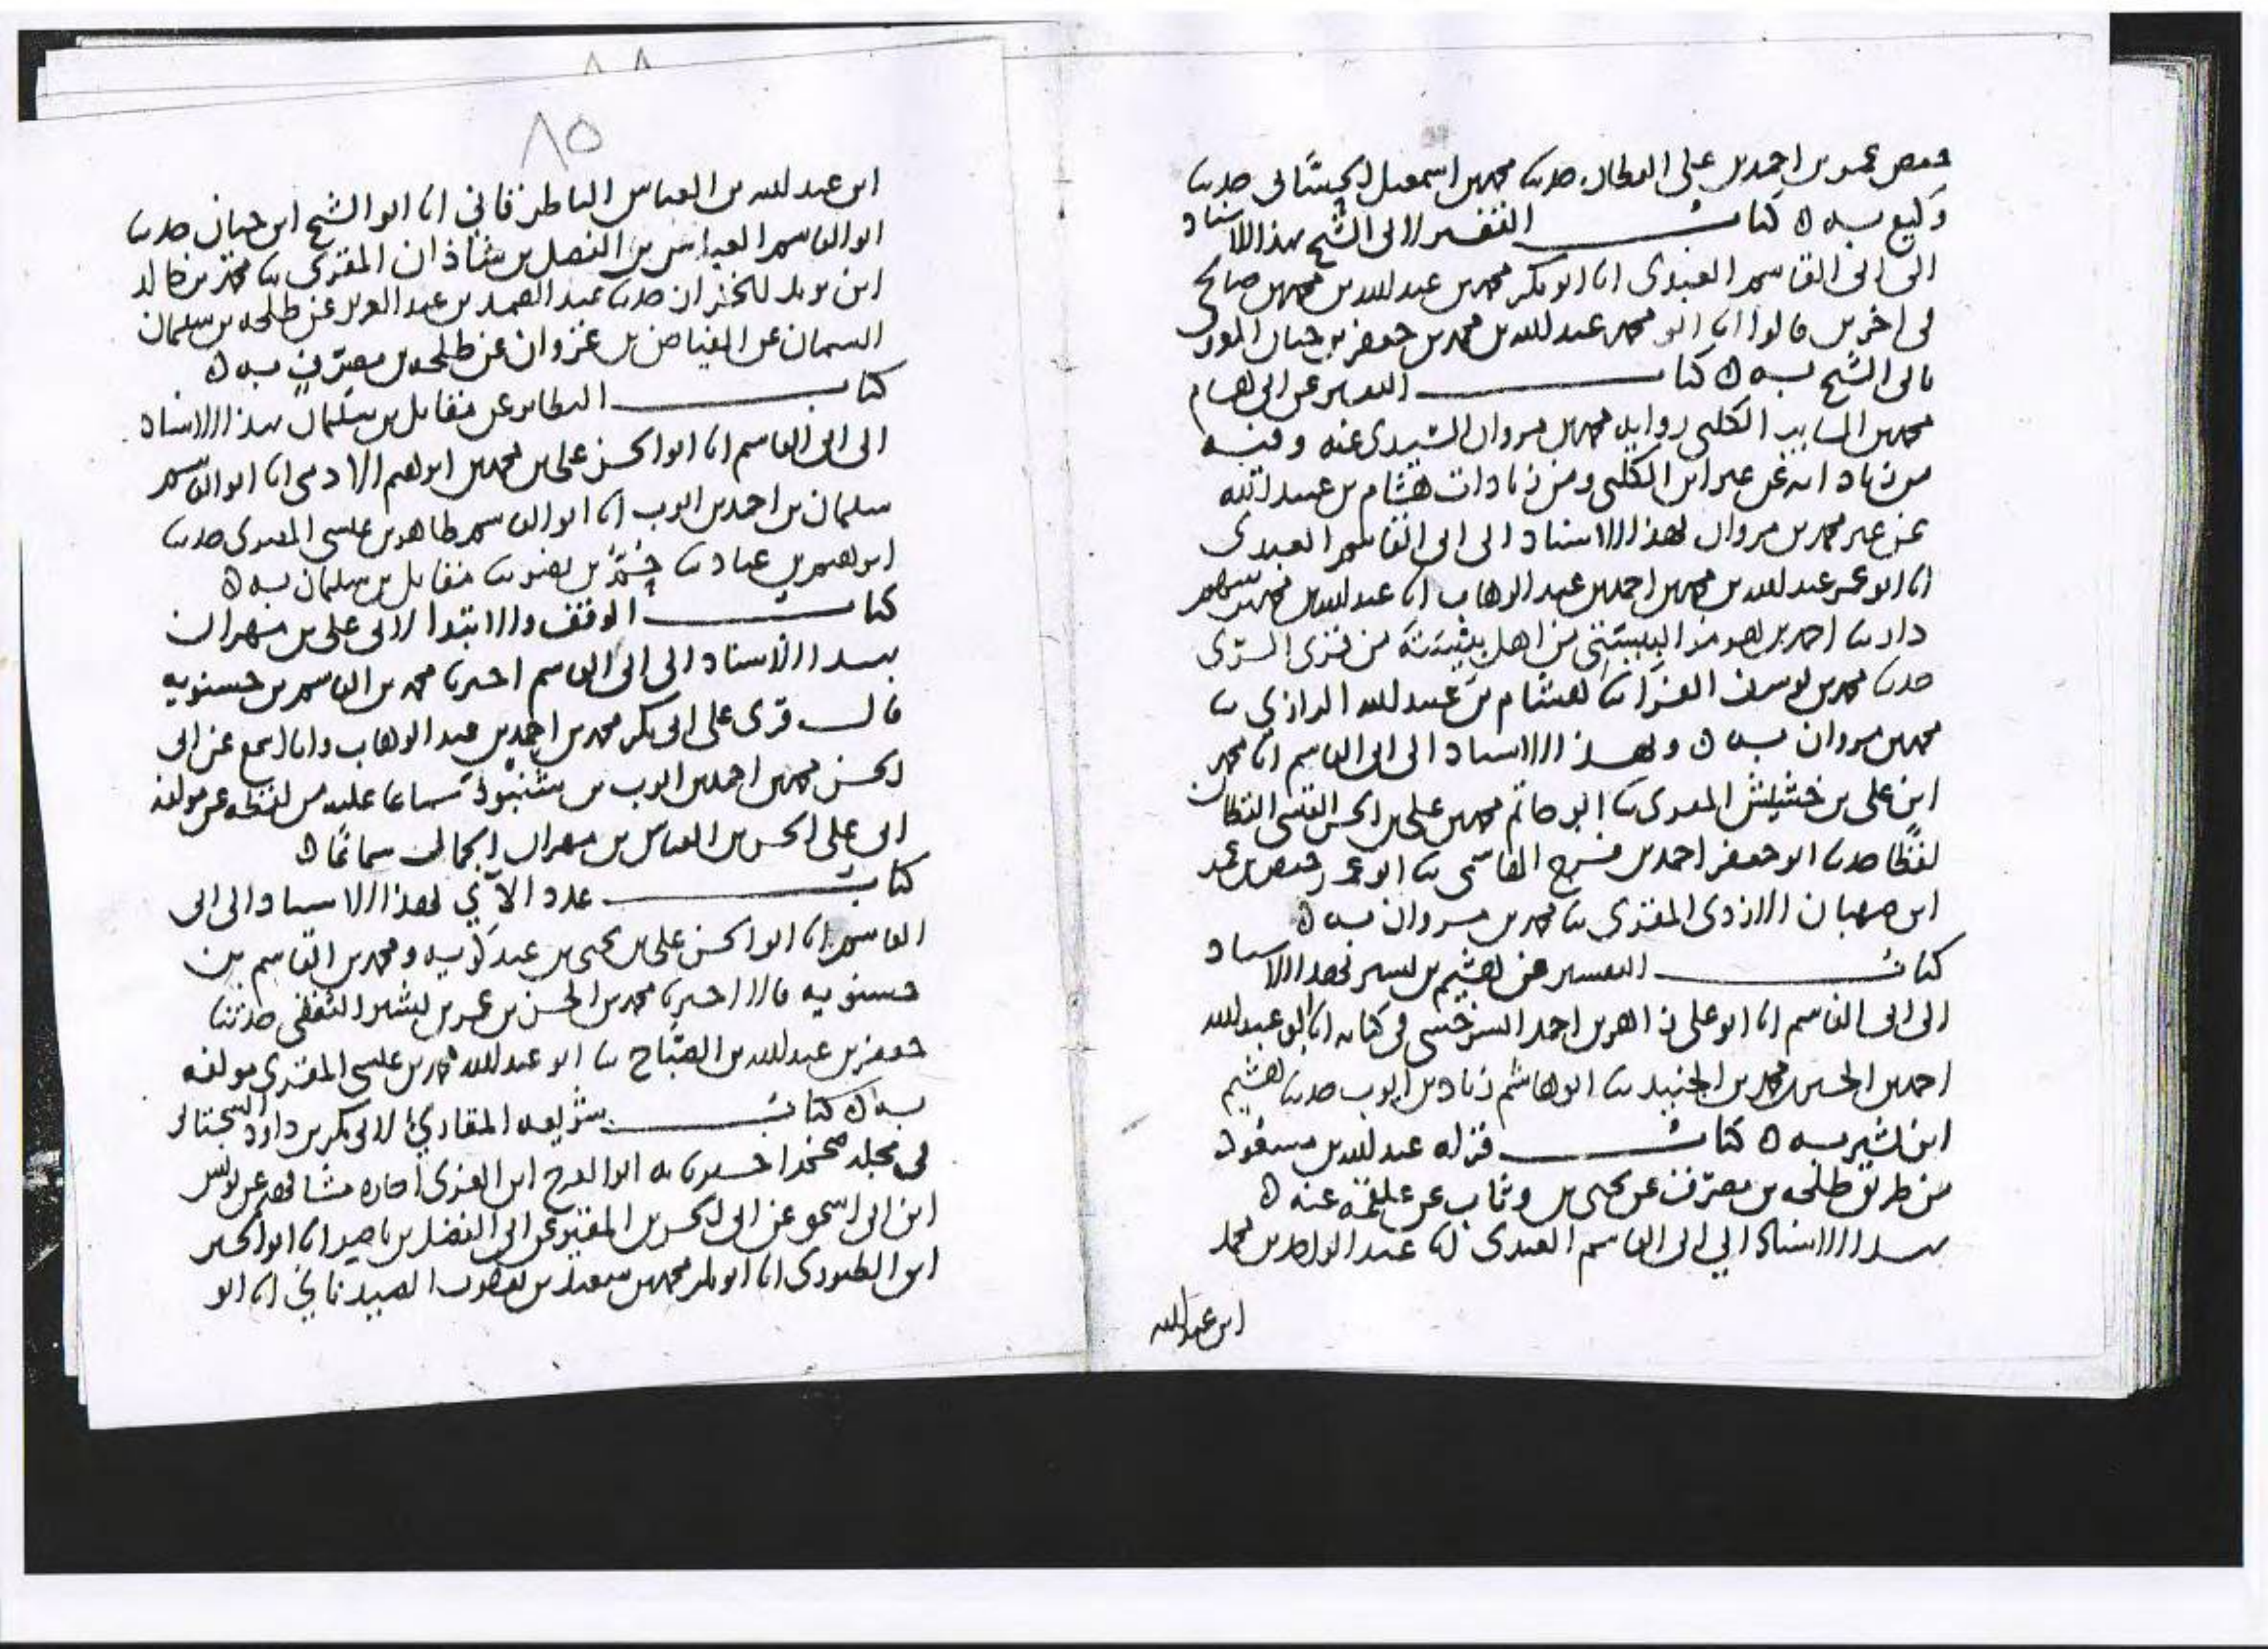 حفص عمر بن احمد بن علي القطان حدثنا محمد بن اسمعيل الحسّاني حدثنا
وكيع به ه كتاب التفسير لابي الشيخ بهذا الاسناد
الى ابي القاسم العبدي انا ابو بكر محمد بن عبد الله بن محمد بن صالح
في اخرين قالوا انا ابو محمد عبد الله بن محمد بن جعفر بن حيان المعروف
بابي الشيخ به ه كتاب التفسير عن ابي هشام
محمد بن السايب الكلبي رواية محمد بن مروان السدي عنه وفيه
من زياداته عن غير ابن الكلبي ومن زيادات هشام بن عبيد الله
عن غير محمد بن مروان بهذا الاسناد الى ابي القاسم العبدي
انا ابو عمر عبد الله بن محمد بن احمد بن عبد الوهاب انا عبد الله بن محمد بن
احمد بن من اهل من قرى الري
حدثنا محمد بن يوسف الفرا نا هشام بن عبيد الله الرازي نا
محمد بن مروان به ه وبهذا الاسناد الى ابي القاسم انا محمد
ابن علي بن خشيش المقري نا ابو حاتم محمد بن علي بن الحسن القطان
لفظا حدثنا ابو جعفر احمد بن فرح نا ابو عمر حفص بن عمر
ابن صهبان الازدي المقري نا محمد بن مروان به ه
كتاب التفسير عن هشيم بن بشير بهذا الاسناد
الى ابي القاسم انا ابو علي زاهر بن احمد السرخسي في كتابه انا ابو عبد الله
احمد بن الحسين محمد بن الجنيد نا ابو هاشم زياد بن ايوب حدثنا هشيم
ابن بشير به ه كتاب قراة عبد الله بن مسعود
من طريق طلحه بن مصرّف عن يحيى بن وثاب عن علقمة عنه ه
بهذا الاسناد الى ابي القاسم العبدي انا عبد الواحد بن محمد
ابن عبد الله
٨٥
ابن عبد الله بن العباس الباطرقاني انا ابو الشيخ ابن حيان حدثنا
ابو القاسم العباس بن الفضل بن شاذان المقري نا محمد بن خالد
ابن الخزان حدثنا عبد الصمد بن عبد العزيز عن طلحه بن سليمان
السمان عن الفياض بن غزوان عن طلحه بن مصرّف به ه
كتاب النظاير عن مقاتل بن سليمان بهذا الاسناد
الى ابي القاسم انا ابو الحسن علي بن محمد بن ابراهيم الادمي انا ابو القاسم
سليمان بن احمد بن ايوب انا ابو القاسم طاهر بن عيسى المقري حدثنا
ابراهيم بن عباد نا مقاتل بن سليمان به ه
كتاب الوقف والابتدا لابي علي بن مهران
بهذا الاسناد الى ابي القاسم اخبرنا محمد بن القاسم بن حسنويه
قال قرى على ابي بكر محمد بن احمد بن عبد الوهاب وانا اسمع عن ابي
الحسن محمد بن احمد بن ايوب بن شنبوذ سماعا عليه من لفظه عن مولفه
ابي علي الحسن بن العباس بن مهران الجمال سماعًا ه
كتاب عدد الآي بهذا الاسناد الى ابي
القاسم انا ابو الحسن علي بن يحيى بن عبدكويه ومحمد بن القاسم بن
حسنويه قالا اخبرنا محمد بن الحسن بن عمر بن بشر الثقفي حدثنا
جعفر بن عبد الله بن الصّبّاح نا ابو عبد الله محمد بن عيسى المقري مولفه
به ه كتاب شريعه المقاري لابي بكر بن داود السجستاني
في مجلد ضخم اخبرنا به ابو الفرج ابن الغزي اجازه مشافهه عن يونس
ابن ابي اسحق عن ابي الحسن بن المقير عن ابي الفضل بن ناصر انا ابو الحسين
ابن الطيوري انا ابو بكر محمد بن سعيد بن يعقوب الصيدناني انا ابو